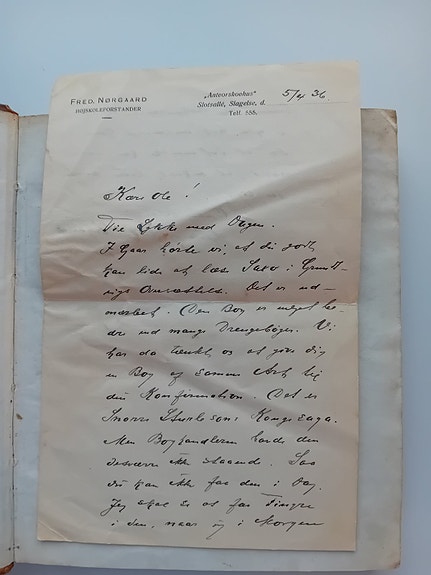 FRED. NØRGAARD
HØJSKOLEFORSTANDER
Slotsallé, Slagelse, d. 5/4 36.
Telf. 555.
Kære Ole!
Til Lykke med Dagen.
I Gaar hørte vi, at du godt
kan lide at læse Saxo i Grundt-
vigs Oversættelse. Det er ud-
mærket. (Den Bog er meget be-
dre end mange Drengebøger. Vi
har da tænkt os at give dig
en Bog af samme Art til
din Konfirmation. (Det er
Snorre Sturlesøns Kongesaga.
Men Boghandleren havde den
desværre ikke staaende. Saa
du kan ikke faa den i Dag.
Jeg skal se at faa Fingre
i den, naar jeg i Morgen